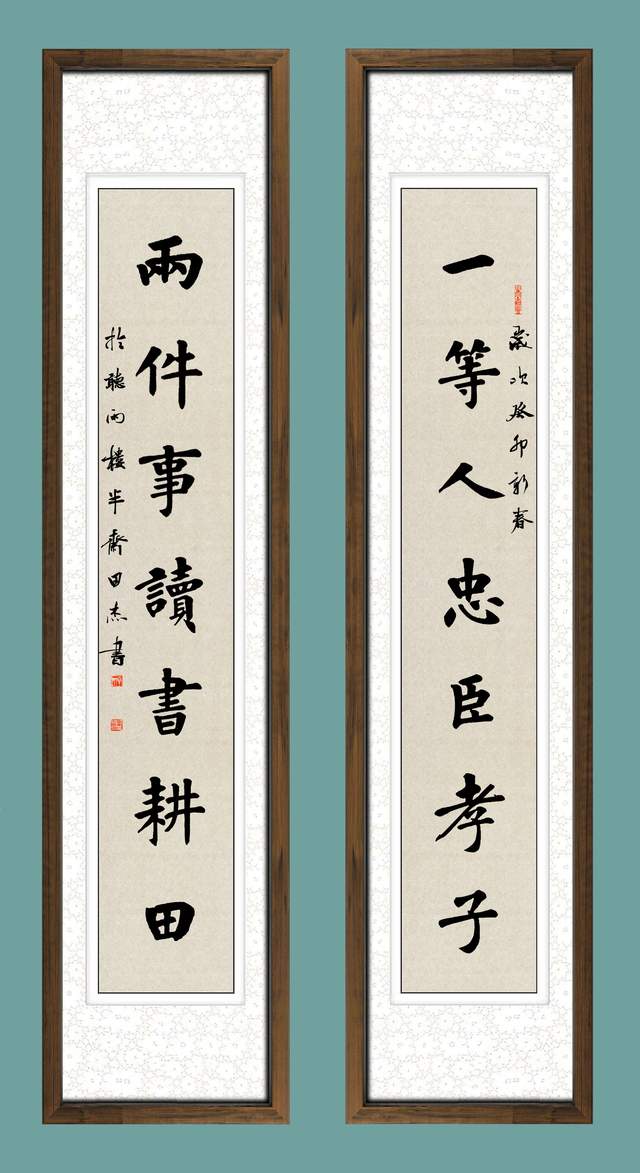 歲次癸卯新春
一等人忠臣孝子
兩件事讀書耕田
於聽雨樓半齋田杰書